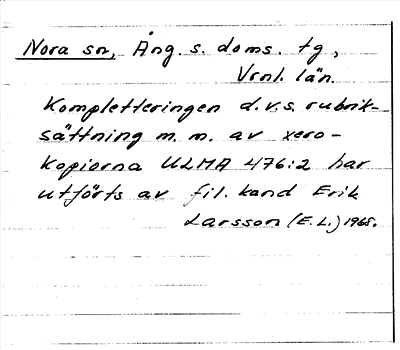 Nora sn, Ång. s. doms. tg,
Vrnl. län.
Kompletteringen d.v.s. rubrik-
sättning m. m. av xero-
kopiorna ULMA 476:2 har
utförts av fil. kand Erik
Larsson (E. L.) 1965.